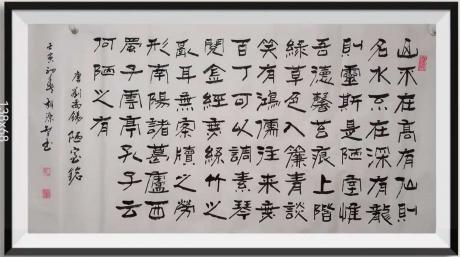 山不在高有仙則
名水不在深有龍
則靈斯是陋室惟
吾德馨苔痕上階
綠草色入簾青談
笑有鴻儒往來無
白丁可以調素琴
閱金經無絲竹之
亂耳無案牘之勞
形南陽諸葛廬西
蜀子雲亭孔子云
何陋之有
唐劉禹錫陋室銘
壬寅初 書
138x68